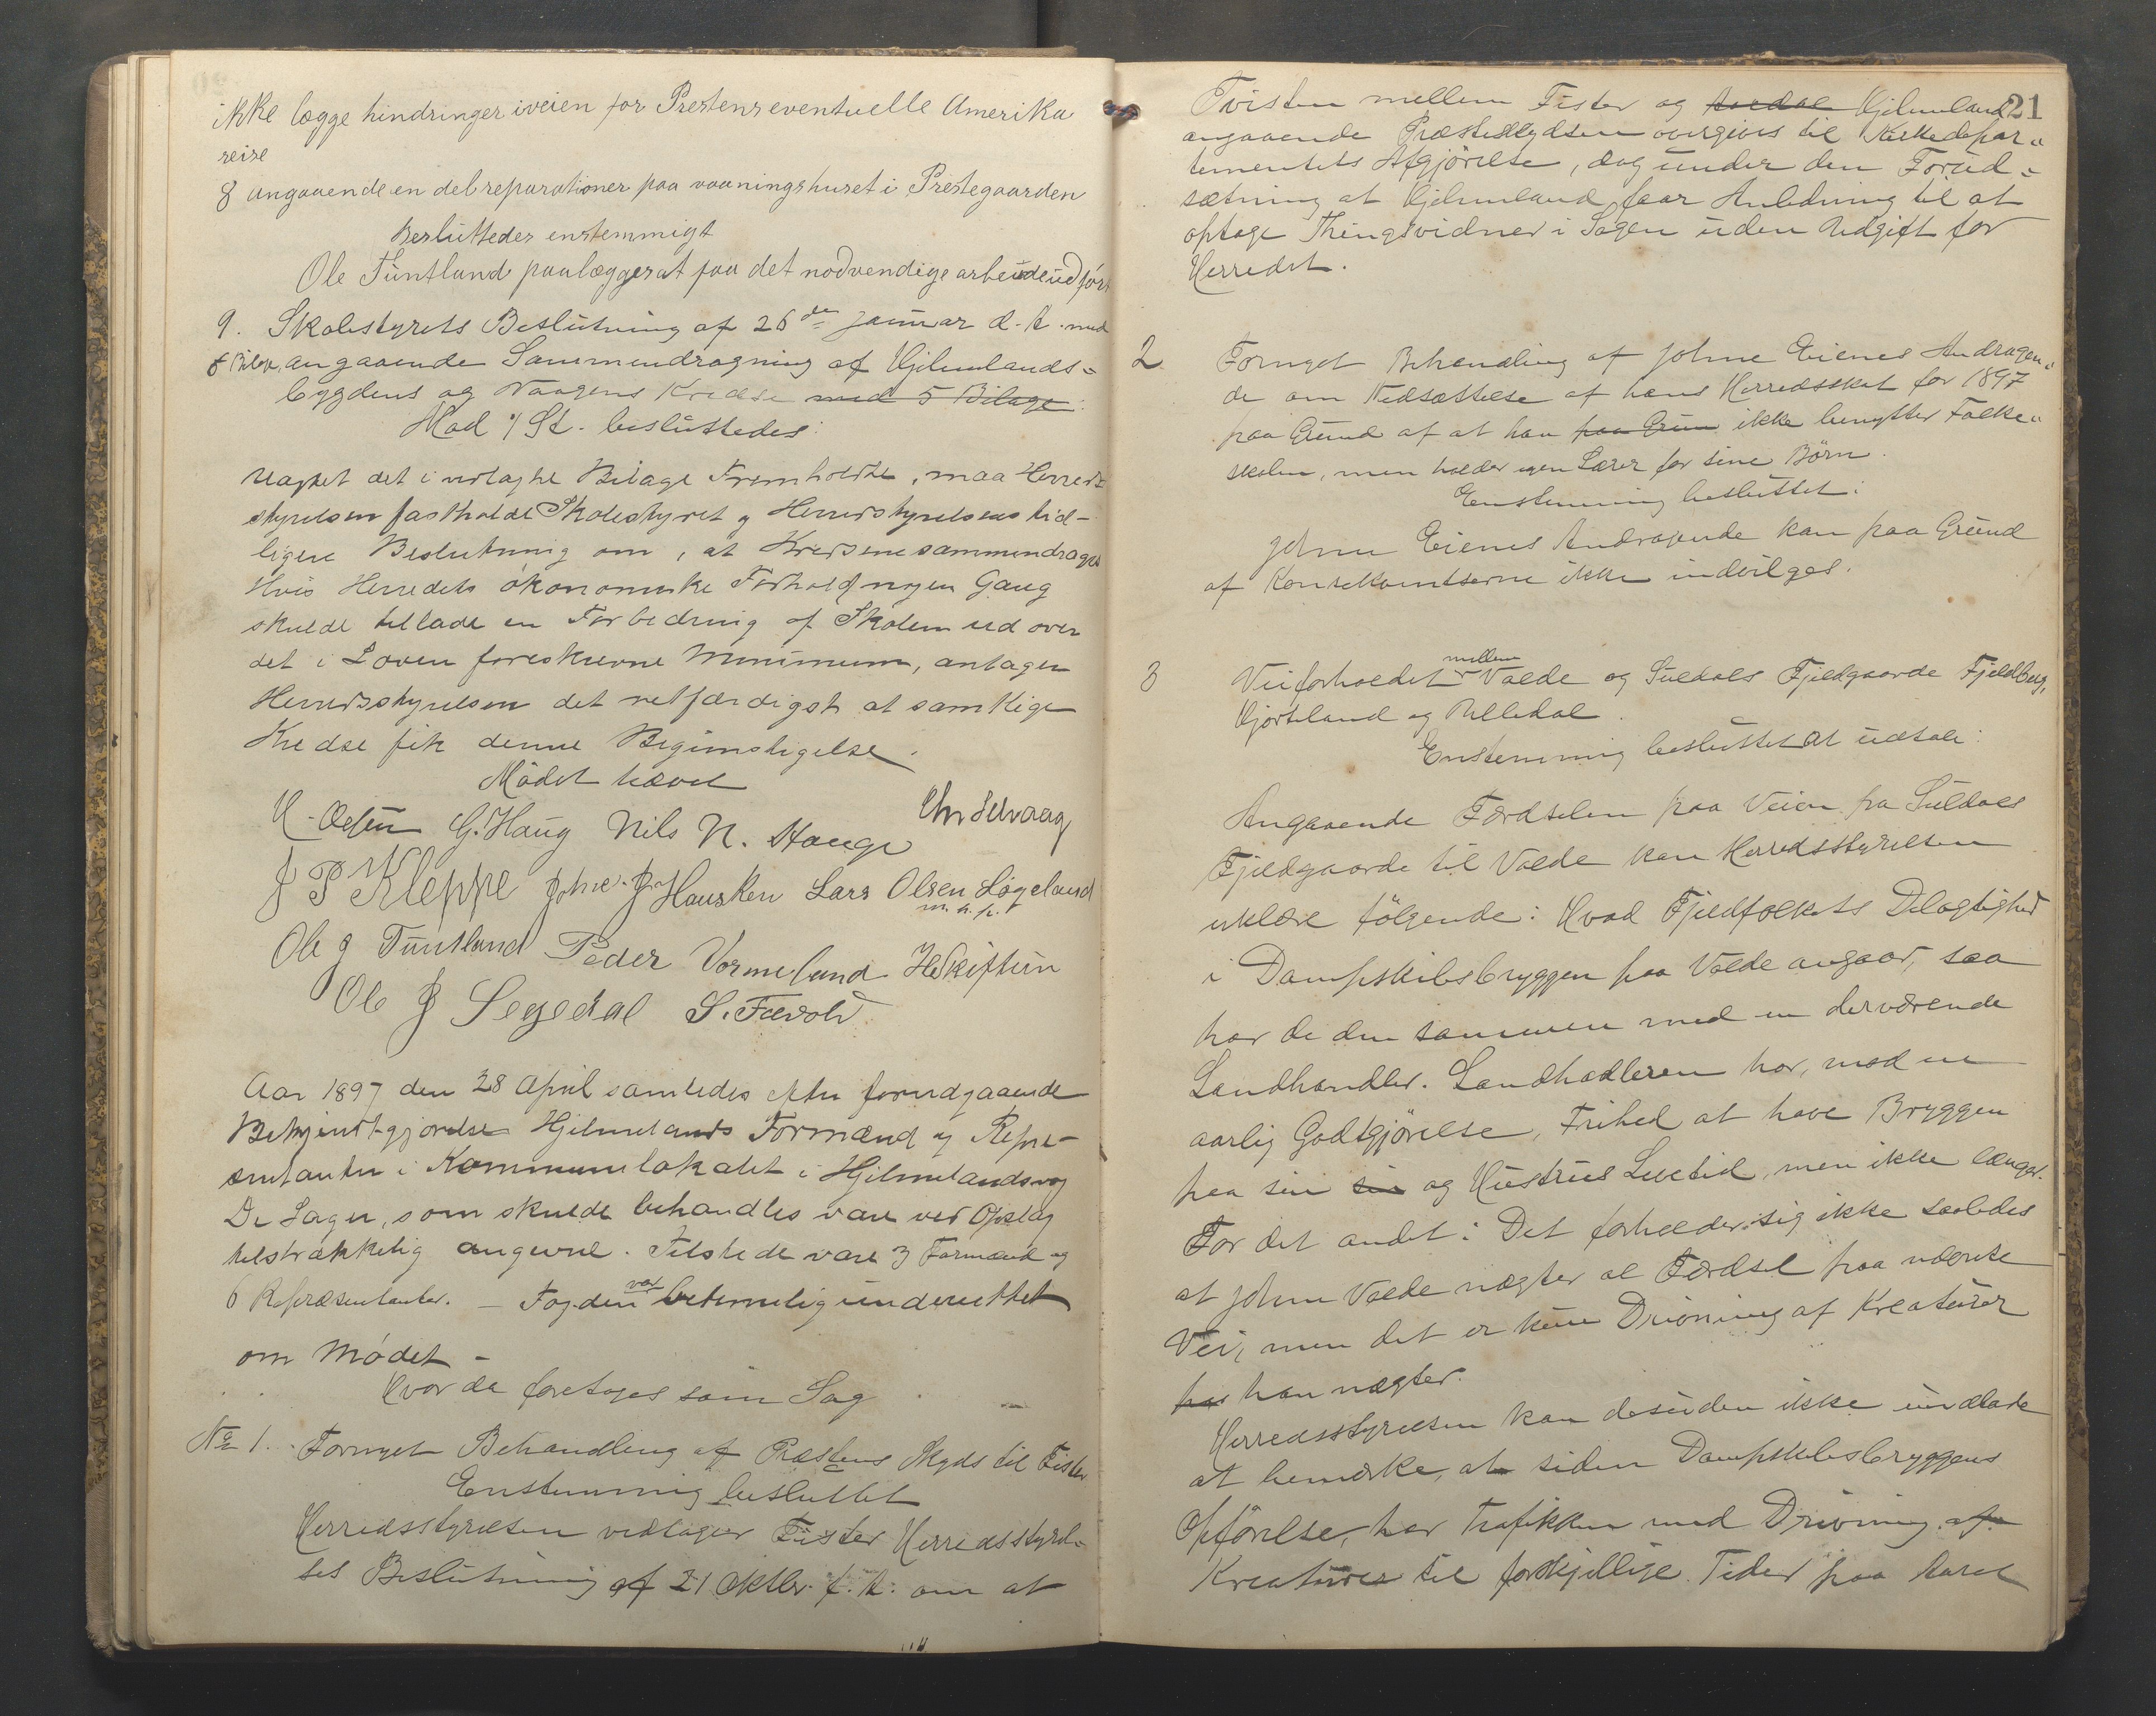 ikke lægge hindringer iveien for Prestens eventuelle Amerika
reise
8 angaaende en del reparationer paa vaaningshuset i Prestegaarden
Besluttedes enstemmigt
Ole Tuntland paalægges at faa det nødvendige arbeide udført
9. Skolestyrets Beslutning af 26de Januar d.A. med
8 Bilage, angaaende Sammendragning af Hjelmelands-
bygdens og Vaagens Kredse med 5 Bilage:
Mod 1 St. besluttedes:
Uagtet det i vedlagte Bilage Fremholdte, maa Herreds-
styrelsen fastholde Skolestyret og Herredsstyrelsens tid-
ligere Beslutning om, at Kredsene sammendrages
Hvis Herredets økonomiske Forhold nogen Gang
skulde tillade en Forbedring af Skolen ud over
det i Loven foreskrevne Minimum, antager
Herredsstyrelsen det retfærdigst at samtlige
Kredse fik denne Begunstigelse.
Mødet hævet
G. Haug Nils N. Hauge
J P Kleppe Johne J Hausken Lars Olsen Løgeland
m. h. p.
Ole J Tuntland Peder Vormeland H Skiftun
Ole J Segedal S. Fævold
Aar 1897 den 28 April samledes efter forudgaaende
Bekjendtgjørelse Hjelmelands Formænd og Repræ-
sentanter i Kommunelokalet i Hjelmelandsvog
De Sager, som skulde behandles vare ved Opslag
tilstrækkelig angivne. Tilstede vare 3 Formænd og
6 Repræsentanter. – Fogden var betimelig underrettet
om Mødet –
Hvor da foretoges som Sag
No 1. Fornyet Behandling af Præstens Skyds til Fister
Enstemmig besluttet
Herredsstyrelsen vedtager Fister Herredsstyrel-
ses Beslutning af 21 Oktbr. f.A. om at
21
Tvisten mellem Fister og Hjelmeland
angaaende Præsteskydsen overgives til Kirkedepar-
tementets Afgjörelse, dog under den Forud-
sætning at Hjelmeland faar Anledning til at
optage Thingsvidner i Sagen uden Udgift for
Herredet.
2 Fornyet Behandling af Johne Eienes Andragen-
de om Nedsættelse af hans Herredsskat for 1897
paa Grund af at han paa Grun ikke benytter Folke-
skolen, men holder egen Lærer for sine Börn.
Enstemmig besluttet:
Johne Eienes Andragende kan paa Grund
af Konsekventserne ikke indvilges.
3 Veiforholdet mellem Volde og Suldals Fjeldgaarde Fjeldberg,
Hjorteland og Ulledal.
Enstemmig besluttet at udtale:
Angaaende Færdselen paa Veien fra Suldals
Fjeldgaarde til Volde kan Herredsstyrelsen
erklære fölgende: Hvad Fjeldfolkets Delagtighed
i Dampskibsbryggen paa Volde angaar, saa
har de den sammen med en derværende
Landhandler. Landhadleren har, mod en
aarlig Godtgjörelse, Frihed at have Bryggen
paa sin sin og Hustrus Levetid, men ikke længer.
For det andet: Det forholder sig ikke saaledes
at Johne Volde nægter al Færdsel paa nævnte
Vei, men det er kun Drivning af Kreaturer
han nægter.
Herredsstyrelsen kan desuden ikke undlade
at bemærke, at siden Dampskibsbryggens
Opförelse, har Trafikken med Drivning af
Kreaturer til forskjellige Tider paa Aaret